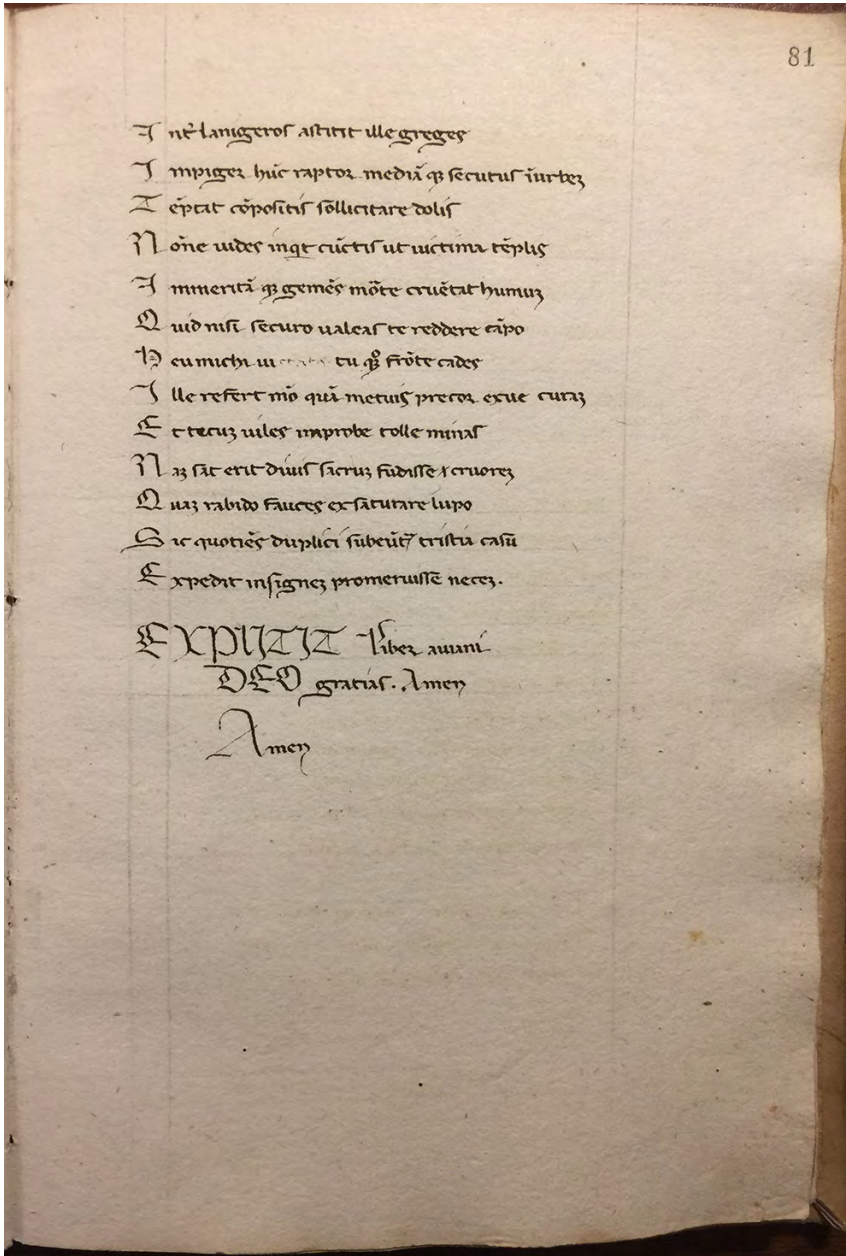 81
I nt̃ lanigeros astitit ille greges
I mpiger hũc raptor mediã qꝫ secutus ĩ urbeꝫ
T ẽptat cõpositis sollicitare dolis
N õne uides inqit cũctis ut uictima tẽplis
I mmeritã qꝫ gemẽs mõte cruẽtat humuꝫ
Q uid nisi securo ualeas te reddere cãpo
H eu michi tu qꝫ frõte cades
I lle refert mõ quã metuis precor exue curaꝫ
E t tecuꝫ uiles improbe tolle minas
N aꝫ sat erit diuis sacruꝫ fudisse cruoreꝫ
Q uaꝫ rabido fauces exsaturare lupo
S ic quotiẽs duplici subeũt tristia casũ
E xpedit insigneꝫ promeruisse neceꝫ.
EXPLICIT liber auiani
DEO gratias. Amen
Amen